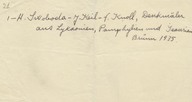 1-H. Swoboda - J. Keil - F. Knoll, Denkmäler
aus Lykaonien, Pamphylien und Isaurien
Brünn 1935